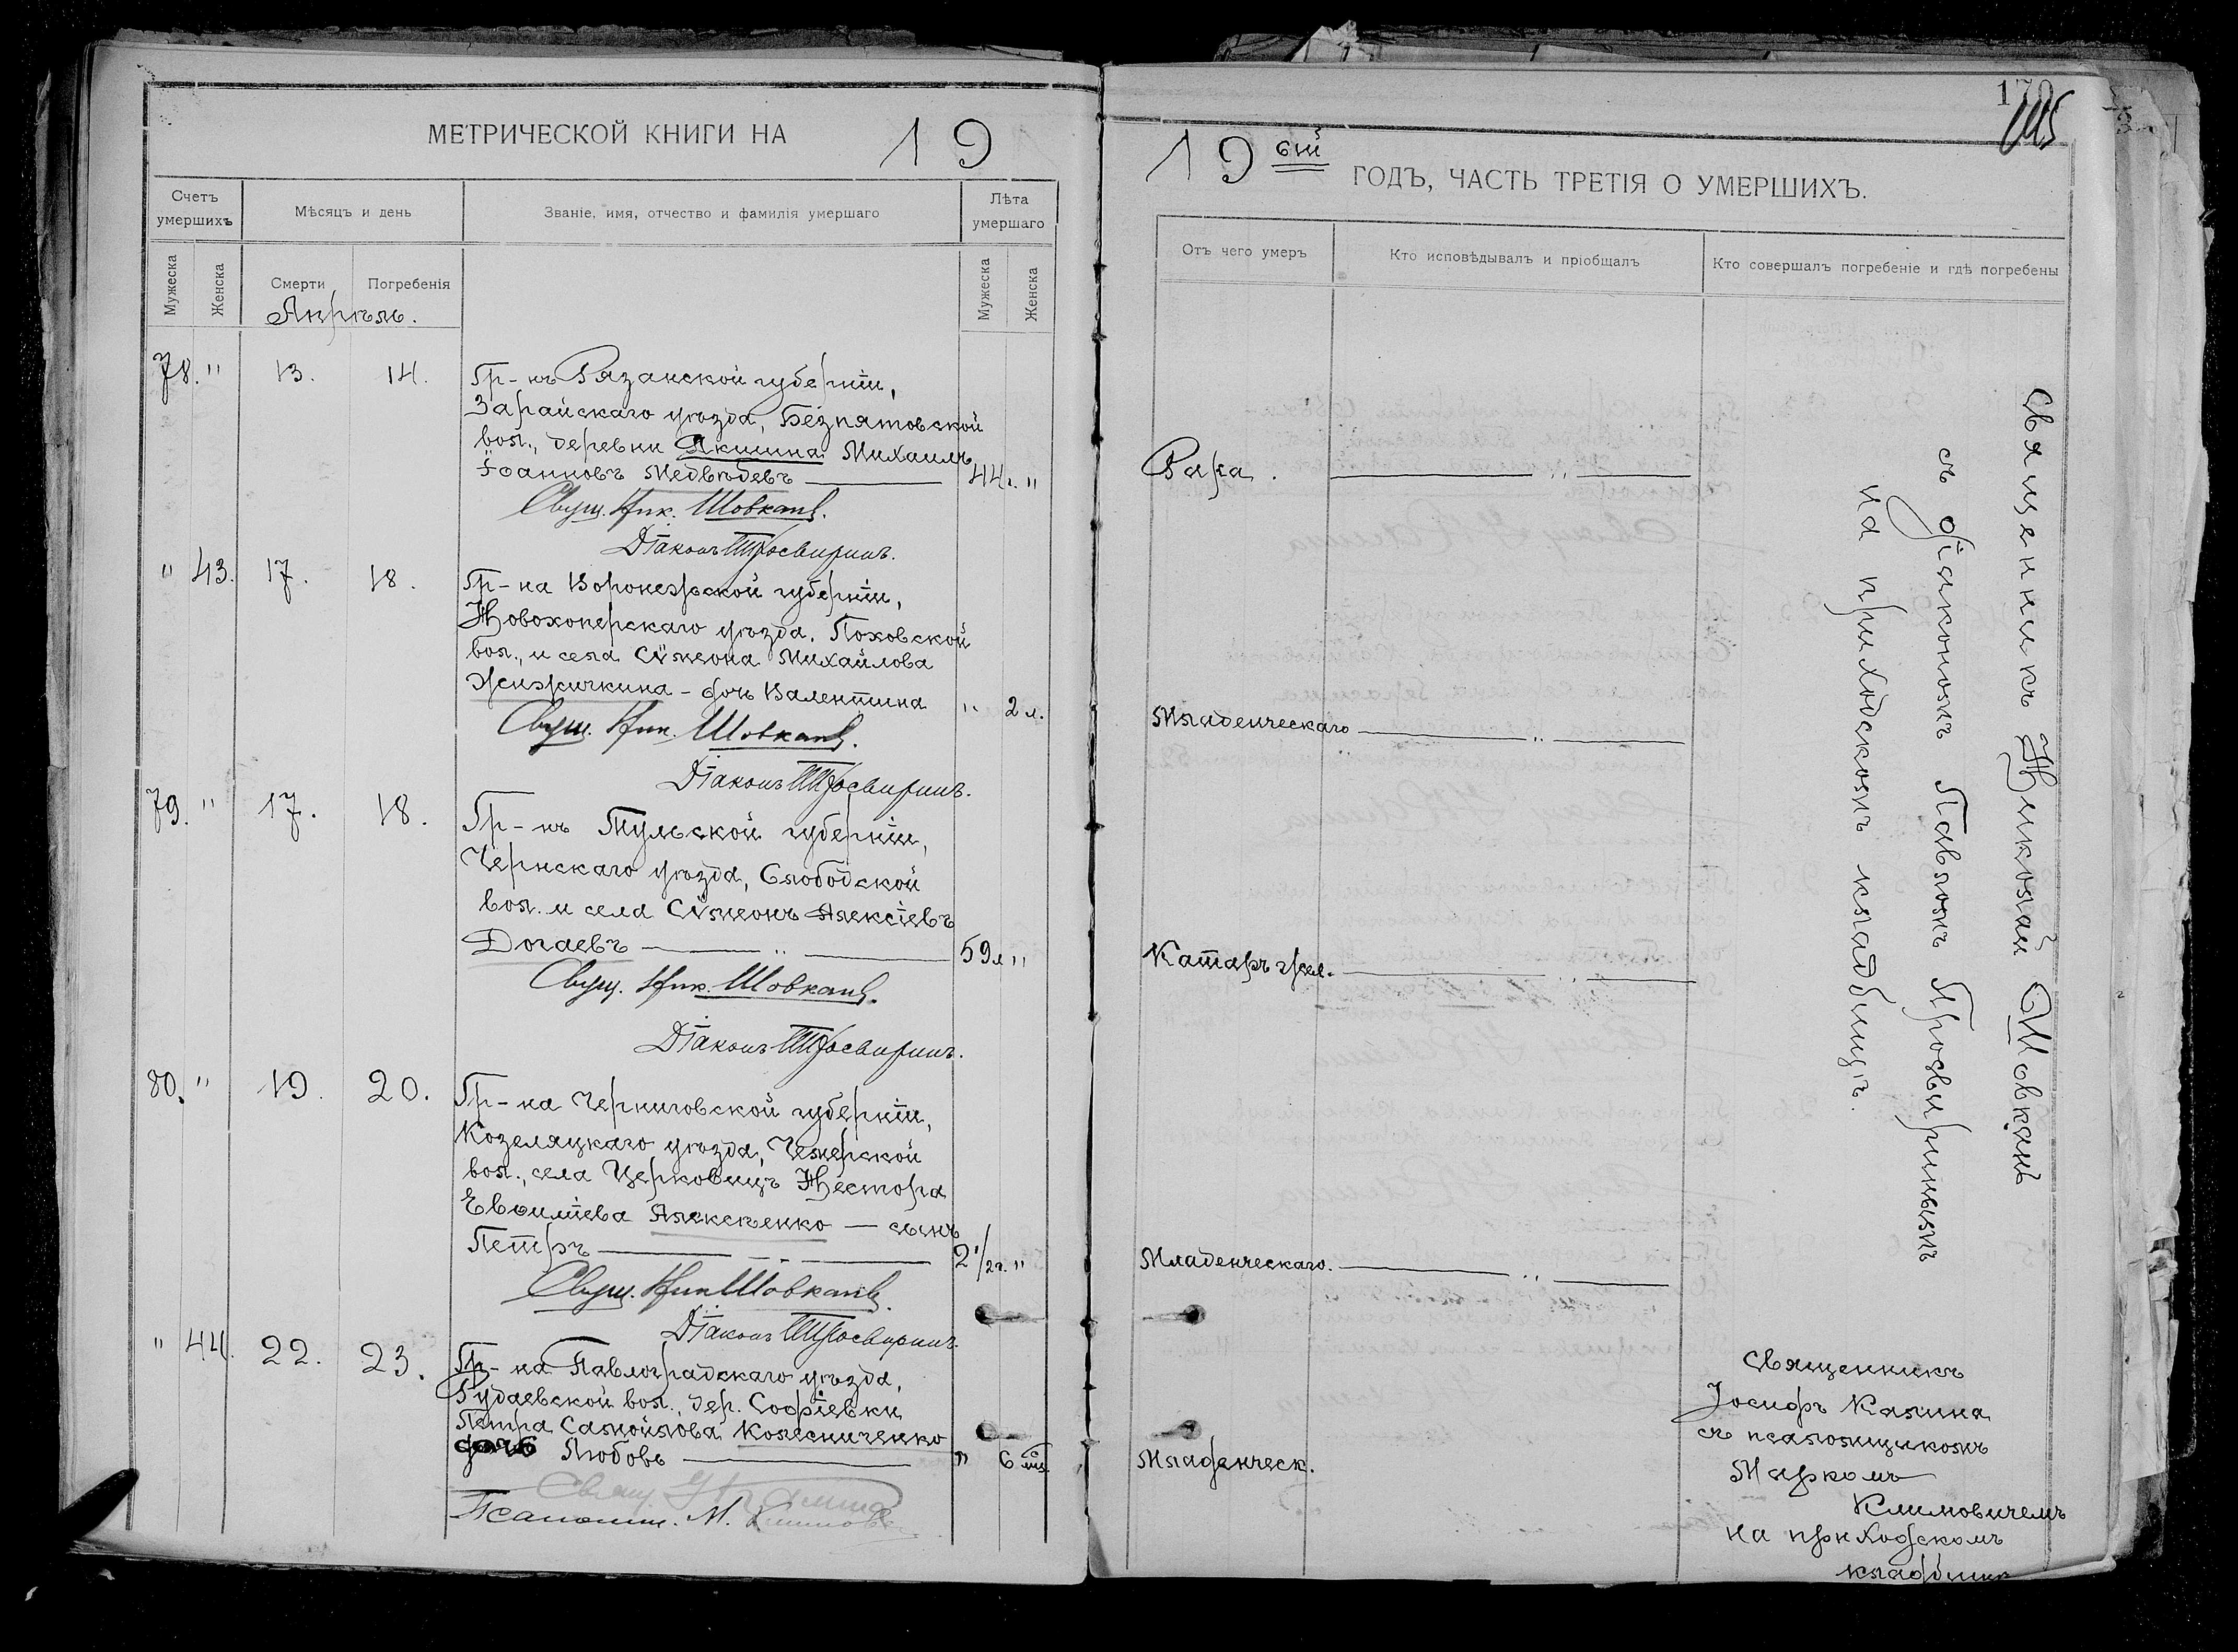 МЕТРИЧЕСКОЙ КНИГИ НА 19
Счетъ умершихъ
Мѣсяцъ и день
Званіе, имя, отчество и фамилія умершаго
Лѣта умершаго
Мужеска
Женска
Смерти
Погребенія
Мужеска
Женска
Апрѣль.
78. " 13. 14.
Гр-нъ Рязанской губерніи,
Зарайскаго уѣзда, Безпятовской
вол., деревни Якшина Михаилъ
Іоанновъ Медвѣдевъ 44 л. "
Свящ. Ник. Шовканъ.
Діаконъ Просвиринъ.
" 43. 17. 18.
Гр-на Воронежской губерніи,
Новохоперскаго уѣзда, Поховской
вол., и села Сѵмеона Михайлова
Жижичкина - дочь Валентина " 2 л.
Свящ. Ник. Шовканъ.
Діаконъ Просвиринъ.
79. " 17. 18.
Гр-нъ Тульской губерніи,
Чернскаго уѣзда, Слободской
вол. и села Сѵмеонъ Алексіевъ
Догаевъ " 59 л "
Свящ. Ник. Шовканъ.
Діаконъ Просвиринъ.
80. " 19. 20.
Гр-на Черниговской губерніи,
Козеляцкаго уѣзда, Чемерской
вол., села Церковищъ Нестора
Евѳиміева Алексѣенко — сынъ
Петръ 2 1/2 г. "
Свящ. Ник Шовканъ.
Діаконъ Просвиринъ.
" 44. 22. 23.
Гр-на Павлоградскаго уѣзда,
Рудаевской вол., дер. Софіевки
Петра Самойлова Колесниченко
дочь Любовь " 6 м.
Свящ. І Калина
Псаломщ. М. Климовичъ
170
145
19 ый ГОДЪ, ЧАСТЬ ТРЕТІЯ О УМЕРШИХЪ.
Отъ чего умеръ
Кто исповѣдывалъ и пріобщалъ
Кто совершалъ погребеніе и гдѣ погребены
Рака. "
Младенческаго "
Катаръ жел. "
Младенческаго. "
Младенческ.
Священникъ Николай Шовканъ
съ діакономъ Павломъ Просвиринымъ
на приходскомъ кладбищѣ.
Священникъ
Іосифъ Калина
съ псаломщикомъ
Маркомъ
Климовичемъ
на приходскомъ
кладбищѣ